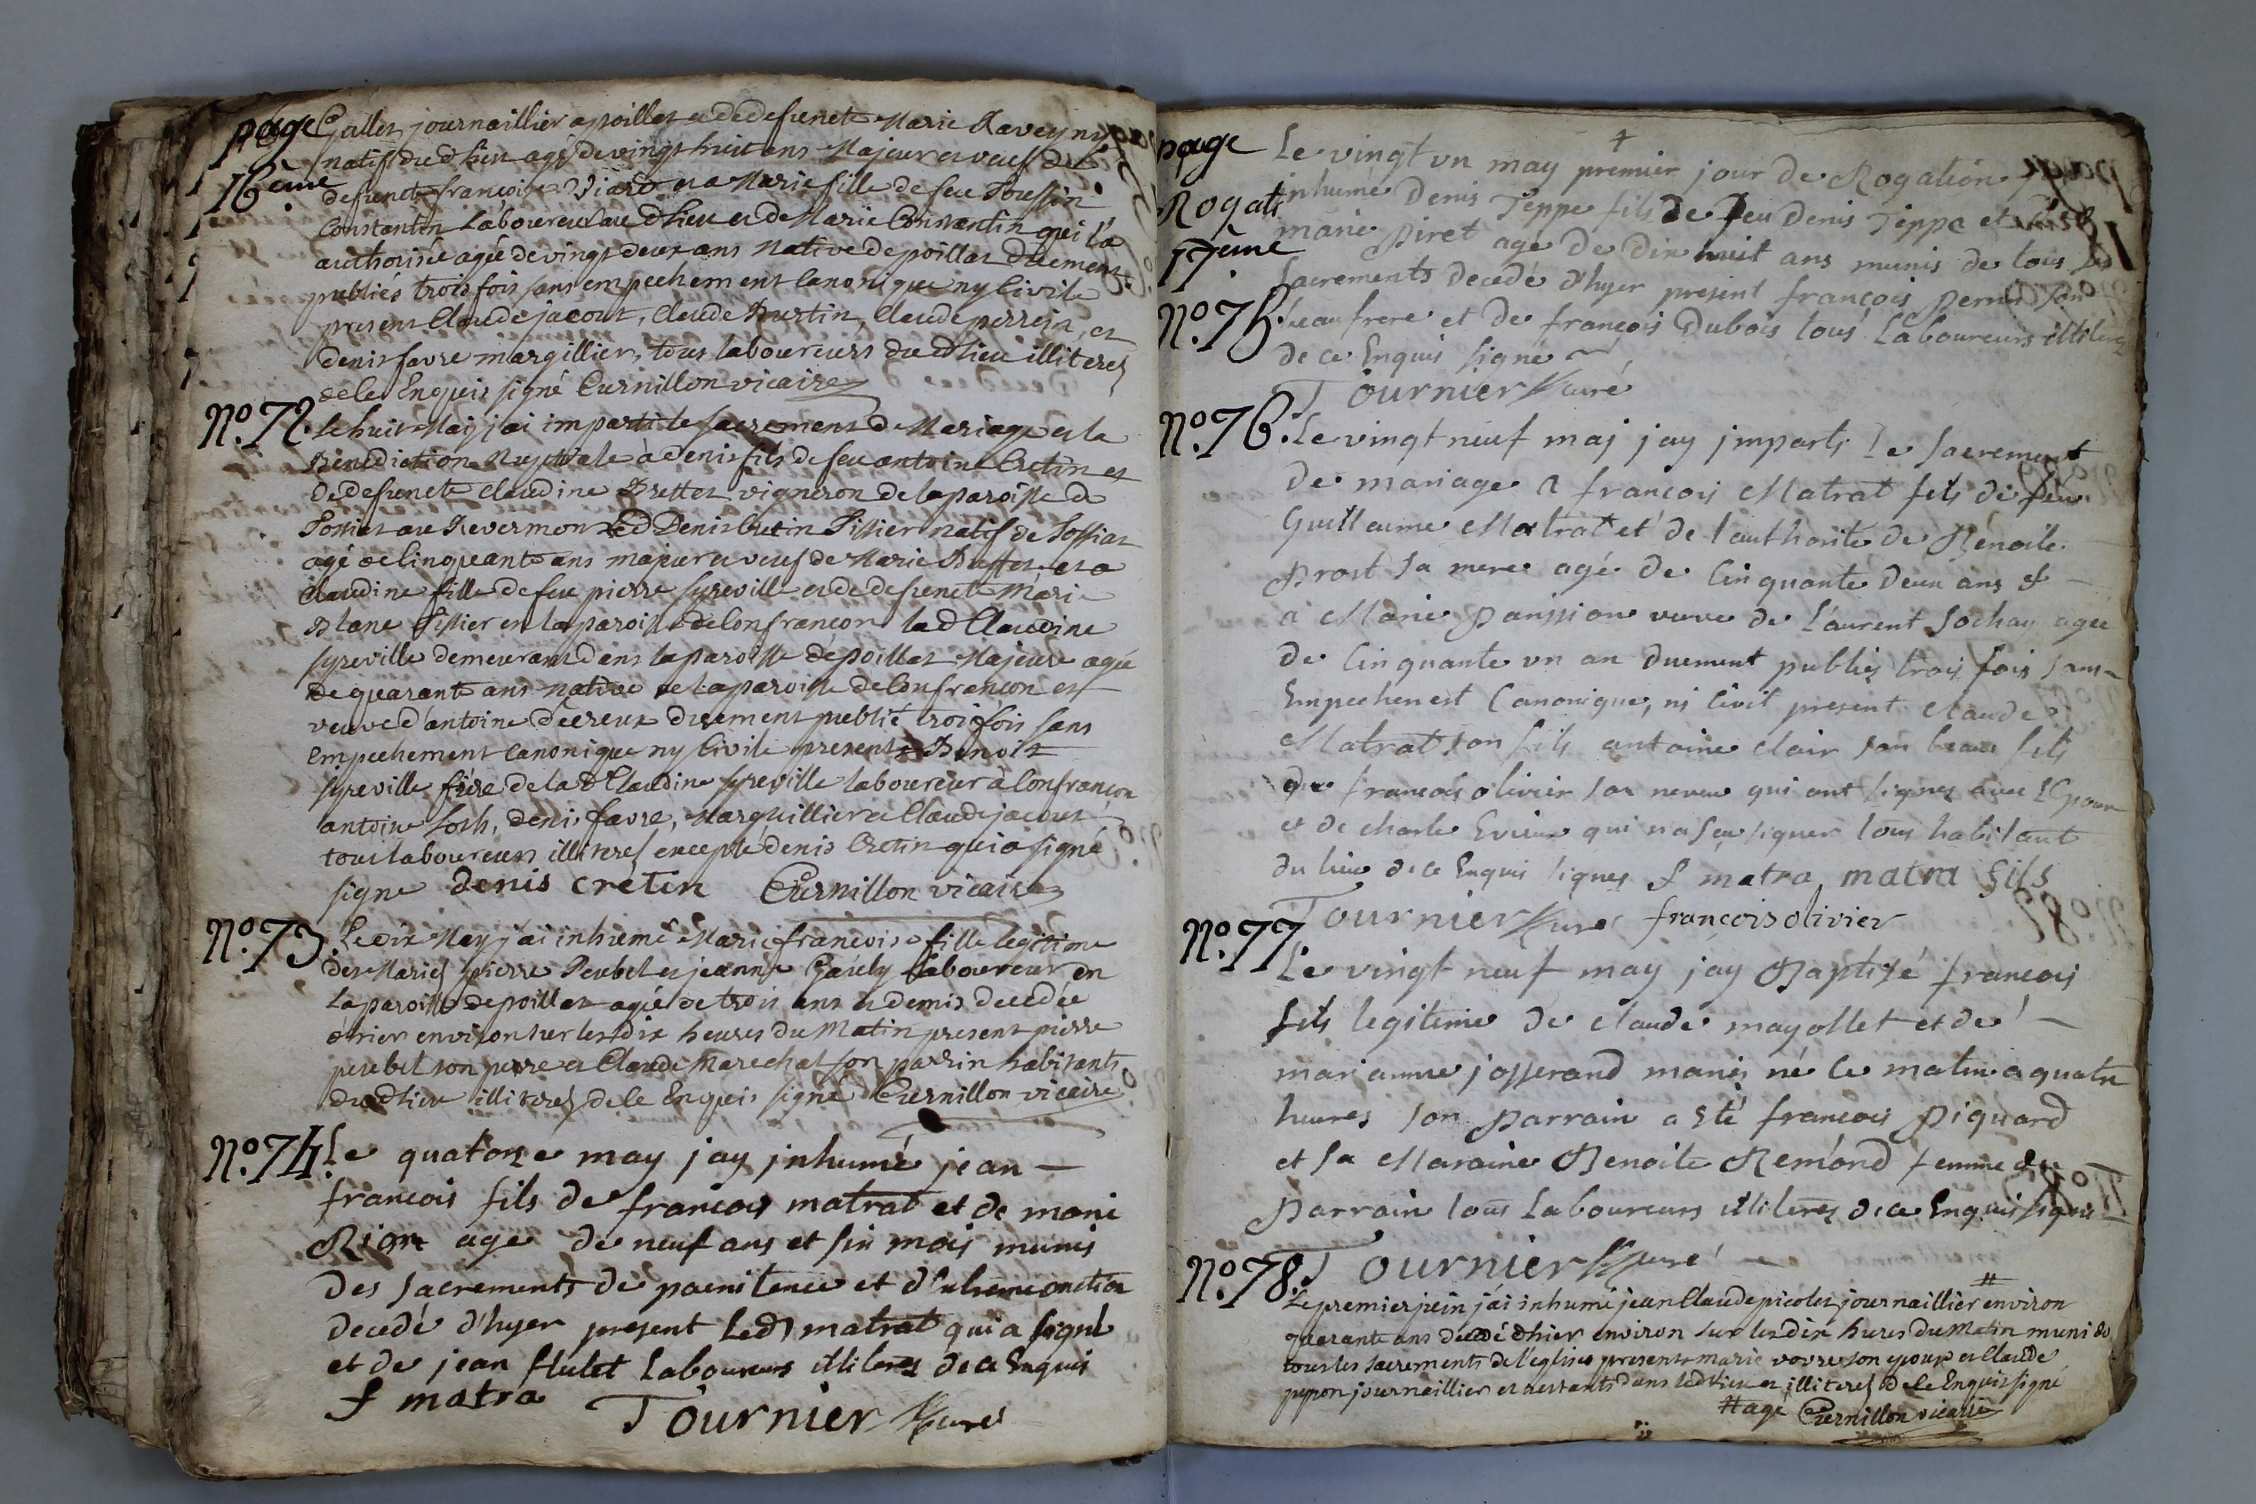 page
16ème
Gallet journaillier a poillat et de defuncte Marie Raveyny
natif dud lieu agé de vingt huit ans Majeur et veuf de
defuncte françoise et a Marie fille de feu Toussin
Constantin Laboureur aud lieu et de Marie Constantin qui l'a
authorisée agée de vingt deux ans Native de poillat duement
publiés trois fois sans empechement Canonique ny Civile
present Claude jacout, Claude Burtin, Claude perrein, et
denis favre margillier, tous laboureurs dud lieu illiteréz
de ce Enquis signé Curnillon vicaire
No. 72. Le huit Maij j'ai imparti le sacrement de Mariage et la
Benediction Nuptiale à denis fils de feu antoine Cretin et
de defuncte Claudine Brettet vigneron de la paroisse de
au Revermon Led Denis Cretin Tissier natif de
agé de Cinquante ans majeur et veuf de Marie Buffet et a
Claudine fille de feu pierre syreville et de defuncte Marie
Blanc Tissier en la paroisse de Confrançon lad Claudine
syreville demeurant dans la paroisse de poillat Majeure agée
de quarante ans native de la paroisse de Confrançon et
veuve d'antoine decreux duement publié trois fois sans
empechement canonique ny Civile present Benoit
syreville frère de la d Claudine syreville laboureur à Confrançon
antoine denis favre, Marguillier et Claude jacout
tous laboureurs illiteréz excepté denis Cretin qui a signé
signe denis cretin Curnillon vicaire
No. 73. Le dix May j'ai inhumé Marie françoise fille legitime
des Mariés pierre Perebel et jeanne Laboureur en
la paroisse de poillat agée de trois ans et demis decedée
d'hier environ sur les dix heures du Matin present pierre
perebel son perre et Claude Marechal son parrin habitants
dud lieu illiteréz de ce Enquis signé Curnillon vicaire
No. 74. Le quatorze may jay jnhumé jean
francois fils de francois matrat et de marie
agé de neuf ans et six mois munis
des sacrements de paenitence et d'extreme onction
decedé d'hyer present Led matrat qui a signé
et de jean Hutet Laboureurs illiteres de ce Enquis
f matra Tournier curé
page
Rogati
17ème
Le vingt un may premier jour de Rogation j
No. 75. inhumé Denis Teppe fils de feu Denis Teppe et
marie Piret agé de dix huit ans munis de tous les
sacrements decedé d'hyer present françois perrin son
beaufrere et de françois Dubois tous Laboureurs illiterez
de ce Enquis signé
Tournier curé
No. 76. Le vingt neuf maj jay jmparti Le sacrement
de mariage a françois Matrat fils de feu
Guillaume Matrat et de l'authorité de Bénoite
Prost sa mere agé de Cinquante deux ans et
a Marie Panssion veuve de Laurent Sochay agée
de Cinquante un an duement publiez trois fois sans
Empechement Canonique, ni Civil present claude
Matrat son fils antoine clair son beau fils
françois olivier son neveu qui ont signez avec L'Epoux
et de charle qui n'a sçu signer tous habitant
du lieu de ce Enquis signez f matra matra fils
Tournier curé françois olivier
No. 77. Le vingt neuf may jay Baptisé francois
fils legitime de claude mayollet et de
marianne josserand mariés né le matin a quatre
heures son Parrain a eté francois Piquard
et sa Maraine Benoite Remond femme du
Parrain tous Laboureurs illiterez de ce Enquis signé
Tournier curé
No. 78. Le premier juin j'ai inhumé jean Claude picolet journaillier # environ
quarante ans decedé d'hier environ sur les dix heures du Matin muni de
tous les sacrements de l'eglise present marie vovre son epouse et Claude
pepon journaillier et restants dans led lieu et illiteréz de ce Enquis signé
# agé Curnillon vicaire